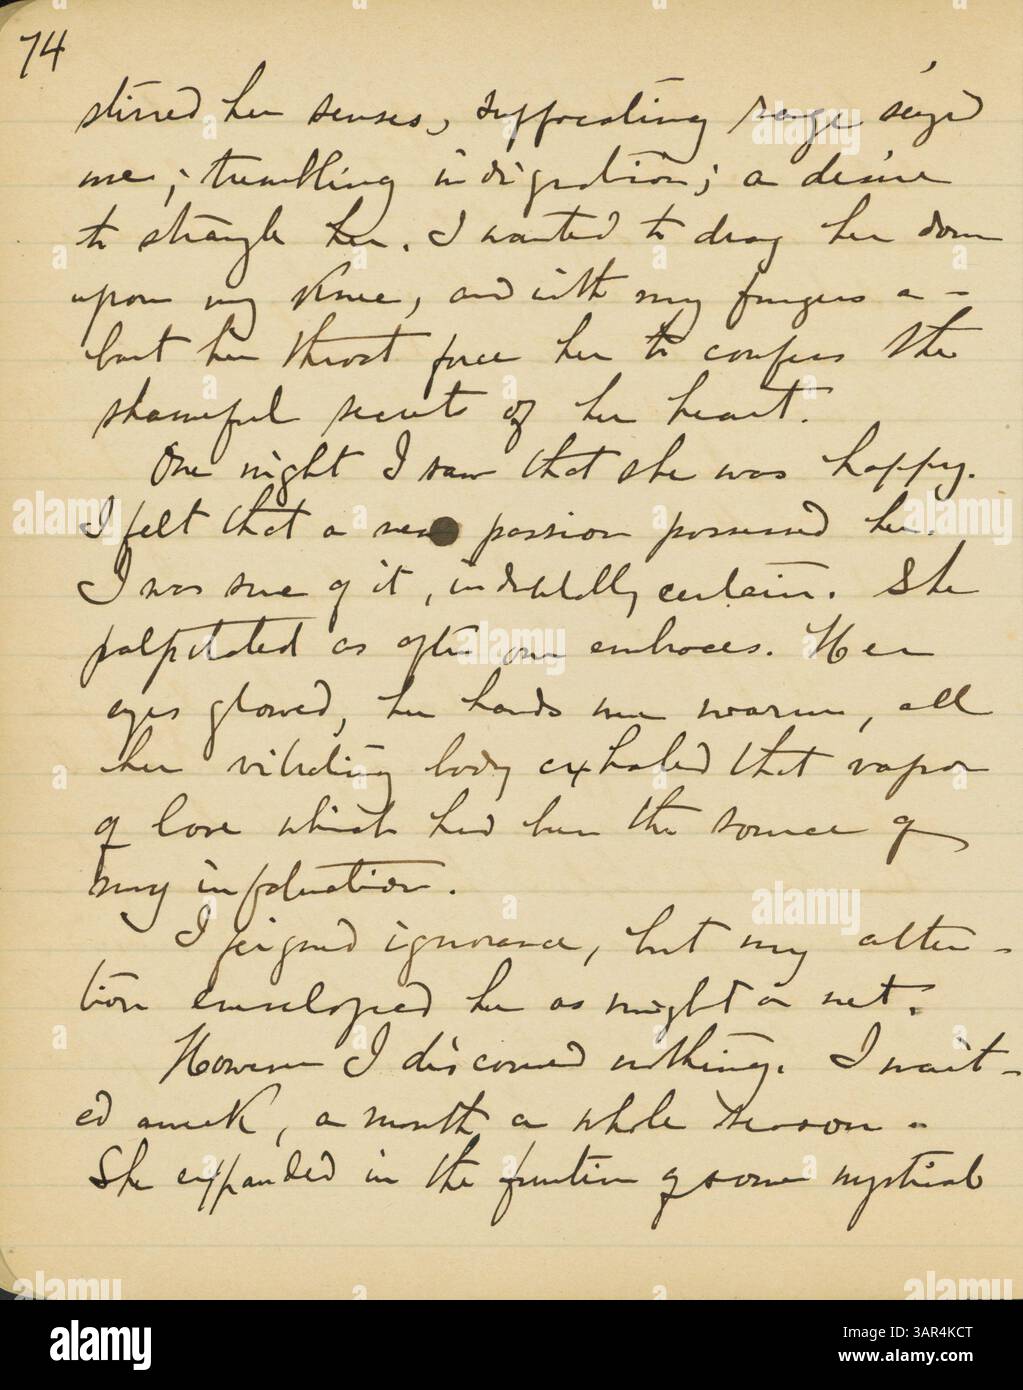 74
stirred her senses, suffocating rage seized
me; trembling indignation; a desire
to strangle her. I wanted to drag her down
upon my knee, and with my fingers a-
bout her throat force her to confess the
shameful secrets of her heart.
One night I saw that she was happy.
I felt that a new passion possessed her.
I was sure of it, indubitably certain. She
palpitated as after our embraces. Her
eyes glowed, her hands were warm, all
her vibrating body exhaled that vapor
of love which had been the source of
my infatuation.
I feigned ignorance, but my atten-
tion enveloped her as might a net.
However I discovered nothing. I wait-
ed a week, a month a whole season -
She expanded in the of some mystical
alamy
Image ID: 3AR4KCT
www.alamy.com